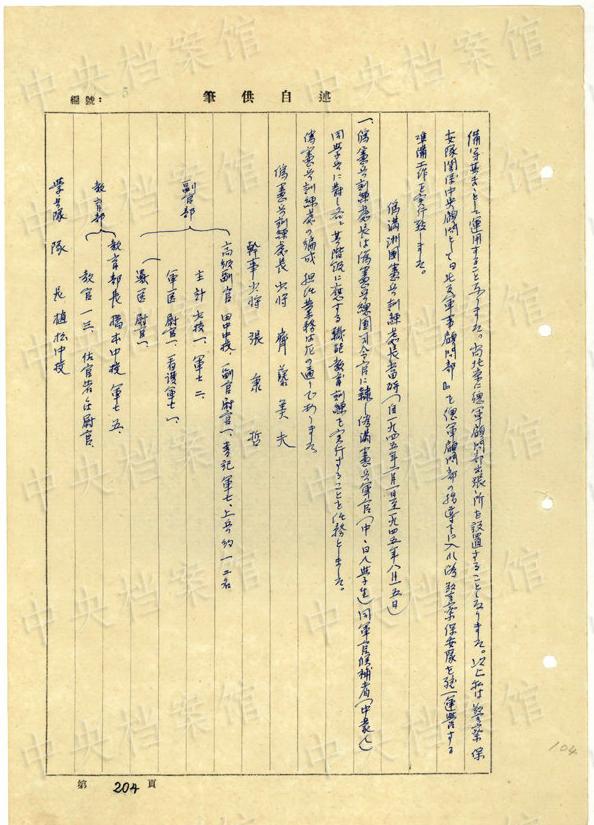 編號：
述自供筆
備等基きとして運用することになりました。尚北京に總軍顧問部出張所を設置することになりました。以上私は警察保
安隊関係中央顧問として日北支軍事顧問部』を總軍顧問部の指導下に入れ得 警察保安隊を統一運営する
準備工作を実行致しました。
偽満洲国憲兵訓練處長当時（自一九四五年 月一日至一九四五年八月一五日）
一、偽憲兵訓練處長は偽憲兵総団司令官に隷 偽満憲兵軍官（中、日人学生）同軍官候補者（中 人）
同学兵に対し各其階級に応ずる職能教育訓練を実行することを任務としました。
偽憲兵訓練處の編成 担任業務は左の通りであります
偽憲兵訓練處長 少将 齊藤美夫
幹事 少将 張 哲
副官部
高級副官 田中中校、副官尉官一、書記軍士、上兵約一二名
主計少校一、軍士二
軍医尉官一、看護軍士一、
獣医尉官一
教育部
教育部長 橋本中校 軍士五、
教官一三、佐官若は尉官
学生隊 隊長 植松中校
第 204 頁
104
中央档案馆